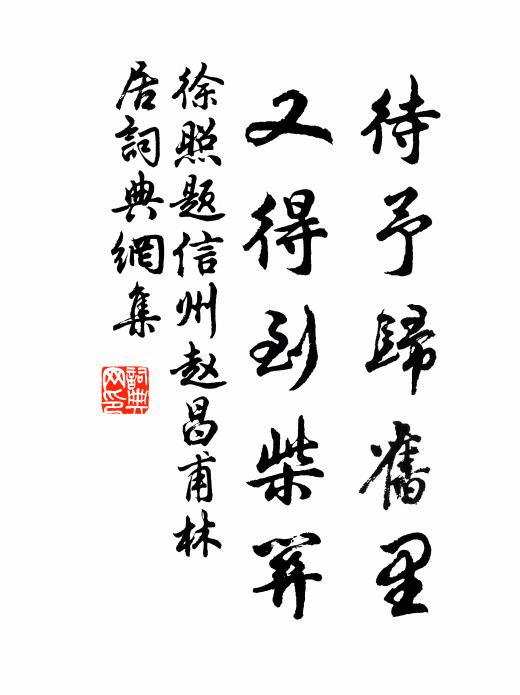 待予歸舊里
又得到柴關
徐照題信州赵昌甫林
居詞典網集
詞典網印